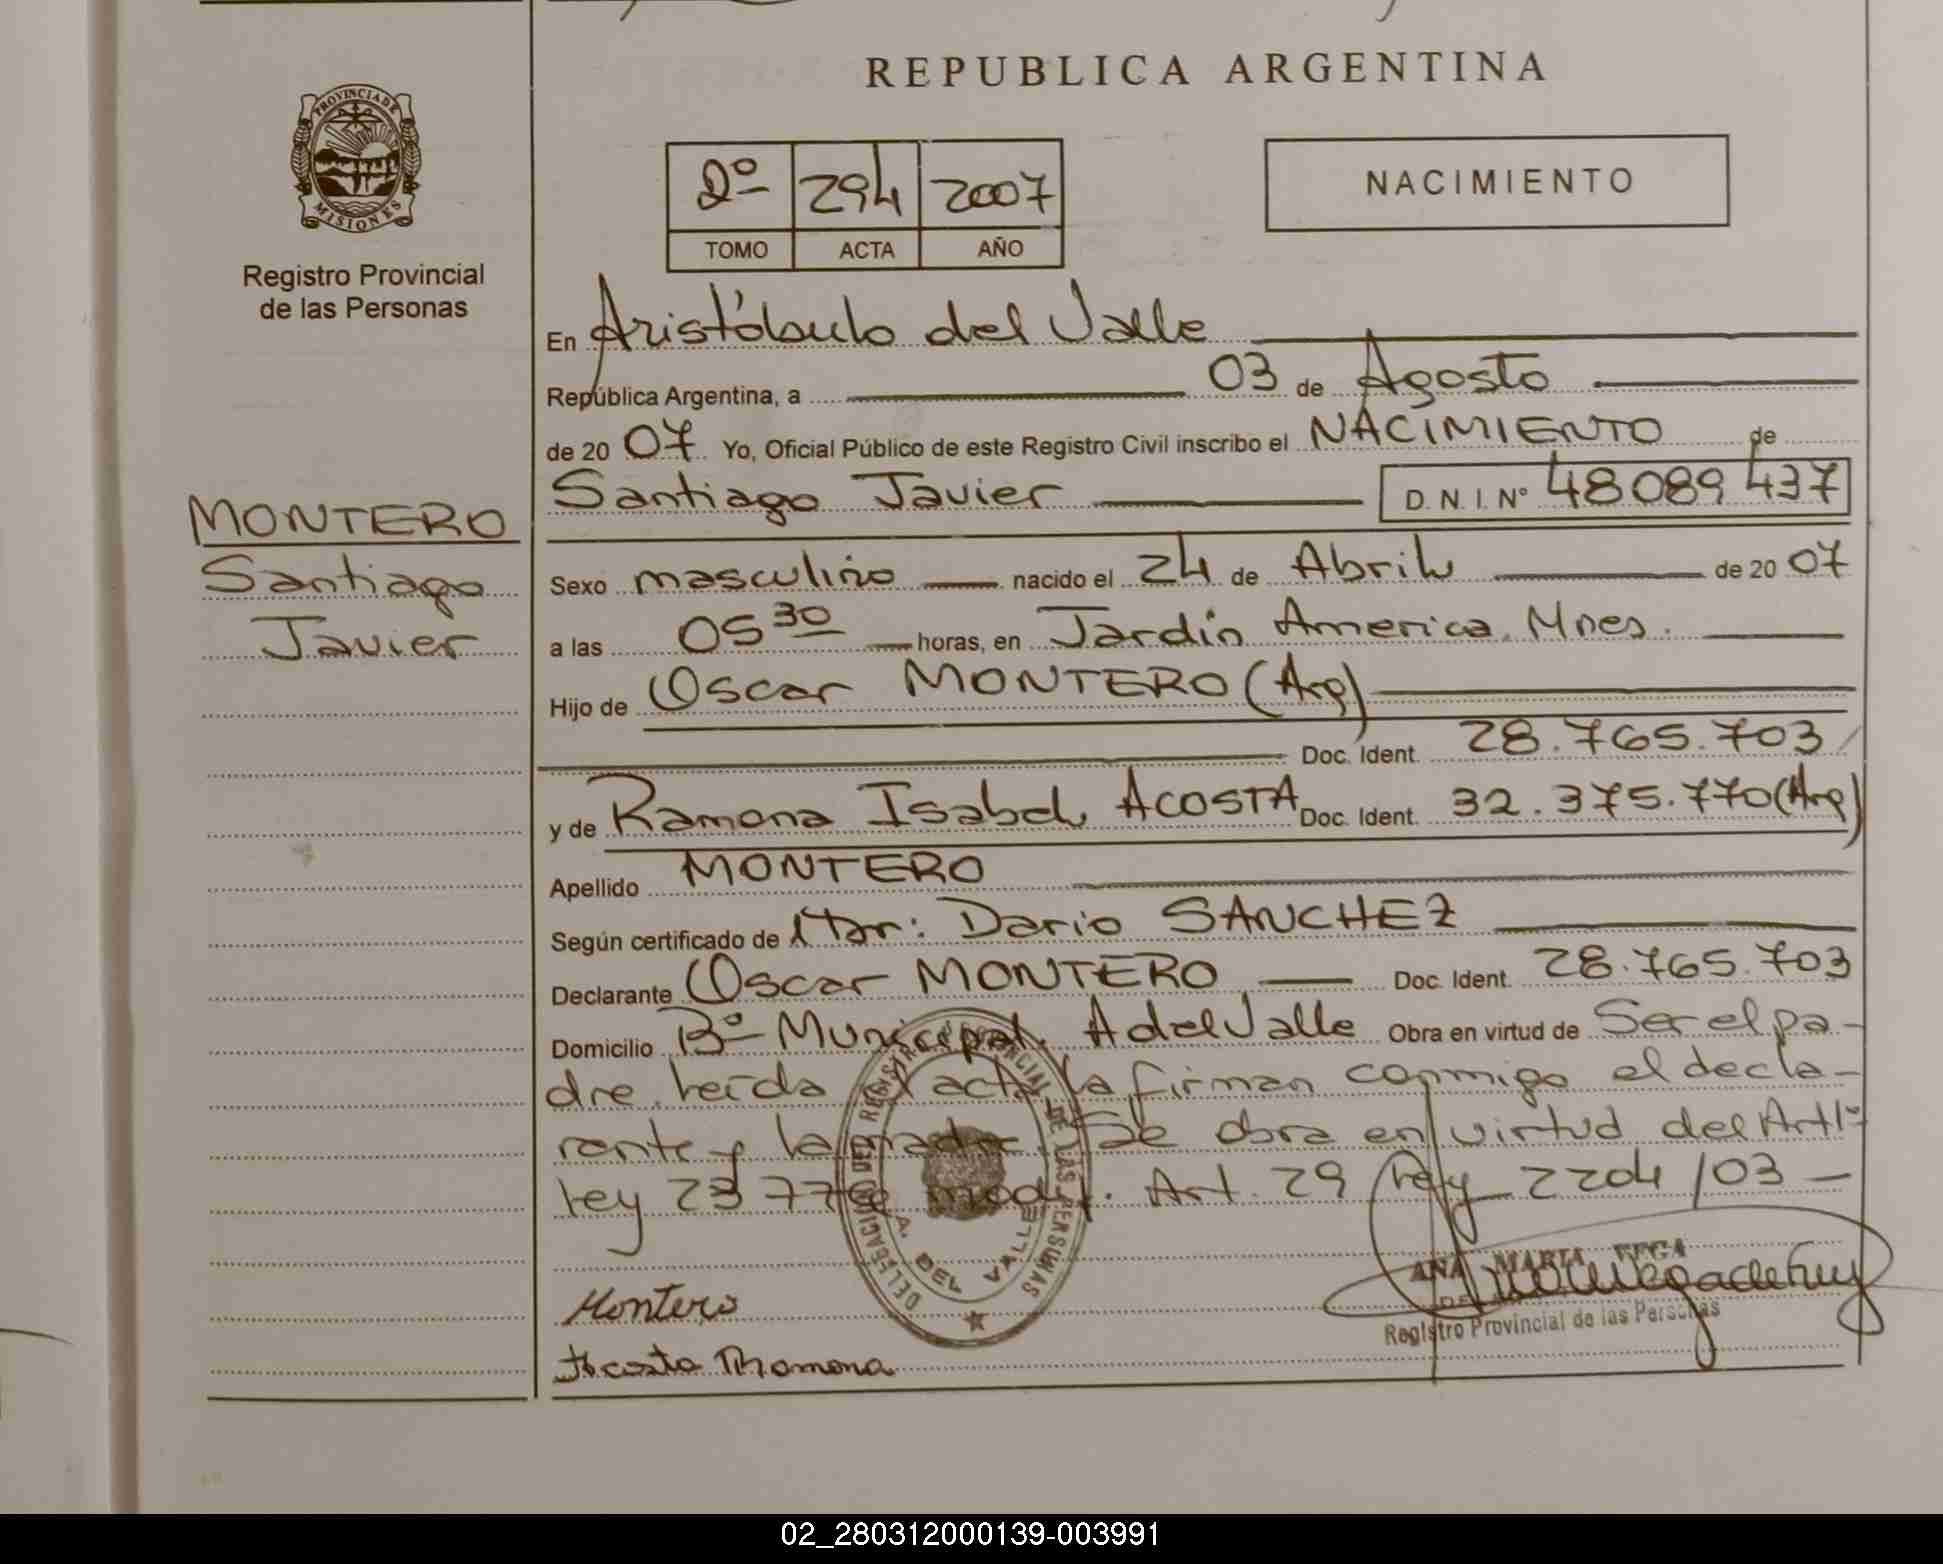 REPUBLICA ARGENTINA
PROVINCIA DE MISIONES
Registro Provincial
de las Personas
2º 294 2007
TOMO ACTA AÑO
NACIMIENTO
En Aristóbulo del Valle
República Argentina, a 03 de Agosto
de 20 07 Yo, Oficial Público de este Registro Civil inscribo el NACIMIENTO de
Santiago Javier D.N.I. Nº 48089437
MONTERO
Santiago
Javier
Sexo masculino nacido el 24 de Abril de 20 07
a las 05 30 horas, en Jardín America. Mnes.
Hijo de Oscar MONTERO (Arg)
Doc. Ident. 28.765.703
y de Ramona Isabel ACOSTA Doc. Ident. 32.375.770 (Arg)
Apellido MONTERO
Según certificado de Dr: Dario SANCHEZ
Declarante Oscar MONTERO Doc. Ident. 28.765.703
Domicilio Bº Municipal. A del Valle Obra en virtud de Ser el pa-
dre. Leída el acta la firman conmigo el decla-
rante y la madre. Se obra en virtud del Art 1º
Ley 23776 modif. Art. 29 2204/03 -
Montero
Acosta Ramona
DELEGACION DEL REGISTRO PROVINCIAL DE LAS PERSONAS
A. DEL VALLE
ANA MARIA VEGA
Registro Provincial de las Personas
02_280312000139-003991